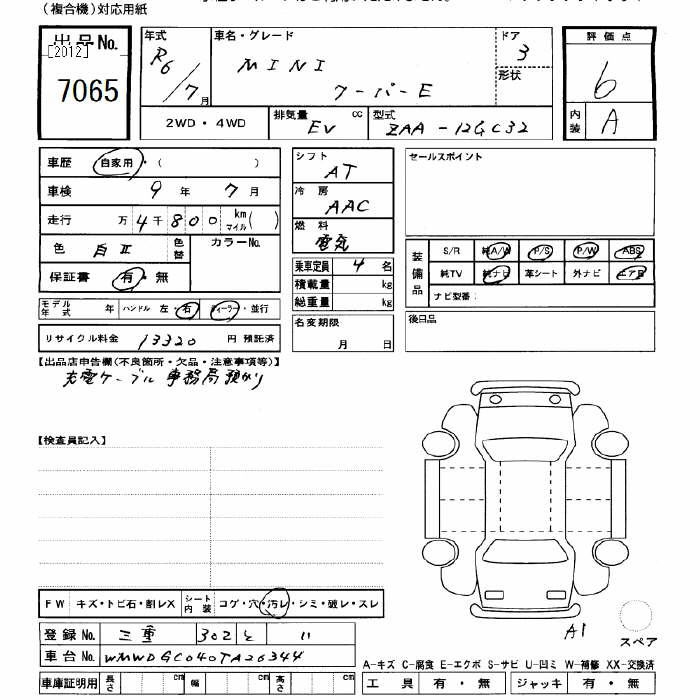 (複合機)対応用紙
出品No.
[2012]
7065
年式 R6/7月
車名・グレード MINI クーパーE
ドア 3
形状
2WD・4WD
排気量 EV cc
型式 ZAA-12GC32
評価点 6
内装 A
車歴 自家用・( )
車検 9年 7月
走行 万4千800 km マイル( )
色 白Ⅱ 色替 カラーNo.
保証書 有・無
モデル年式 年 ハンドル 左・右 ディーラー・並行
リサイクル料金 13320 円 預託済
シフト AT
冷房 AAC
燃料 電気
乗車定員 4名
積載量 kg
総重量 kg
名変期限 月 日
セールスポイント
装備品 S/R 純A/W P/S P/W ABS
純TV 純ナビ 革シート 外ナビ エアB
ナビ型番:
後日品
【出品店申告欄(不良箇所・欠品・注意事項等)】
充電ケーブル 事務局預かり
【検査員記入】
FW キズ・トビ石・割レX シート内装 コゲ・穴・汚レ・シミ・破レ・スレ
登録No. 三重 302 と 11
車台No. WMWDGC040TA26344
車庫証明用 長さ cm 幅 cm 高さ cm
A1
スペア
A-キズ C-腐食 E-エクボ S-サビ U-凹ミ W-補修 XX-交換済
工具 有・無 ジャッキ 有・無